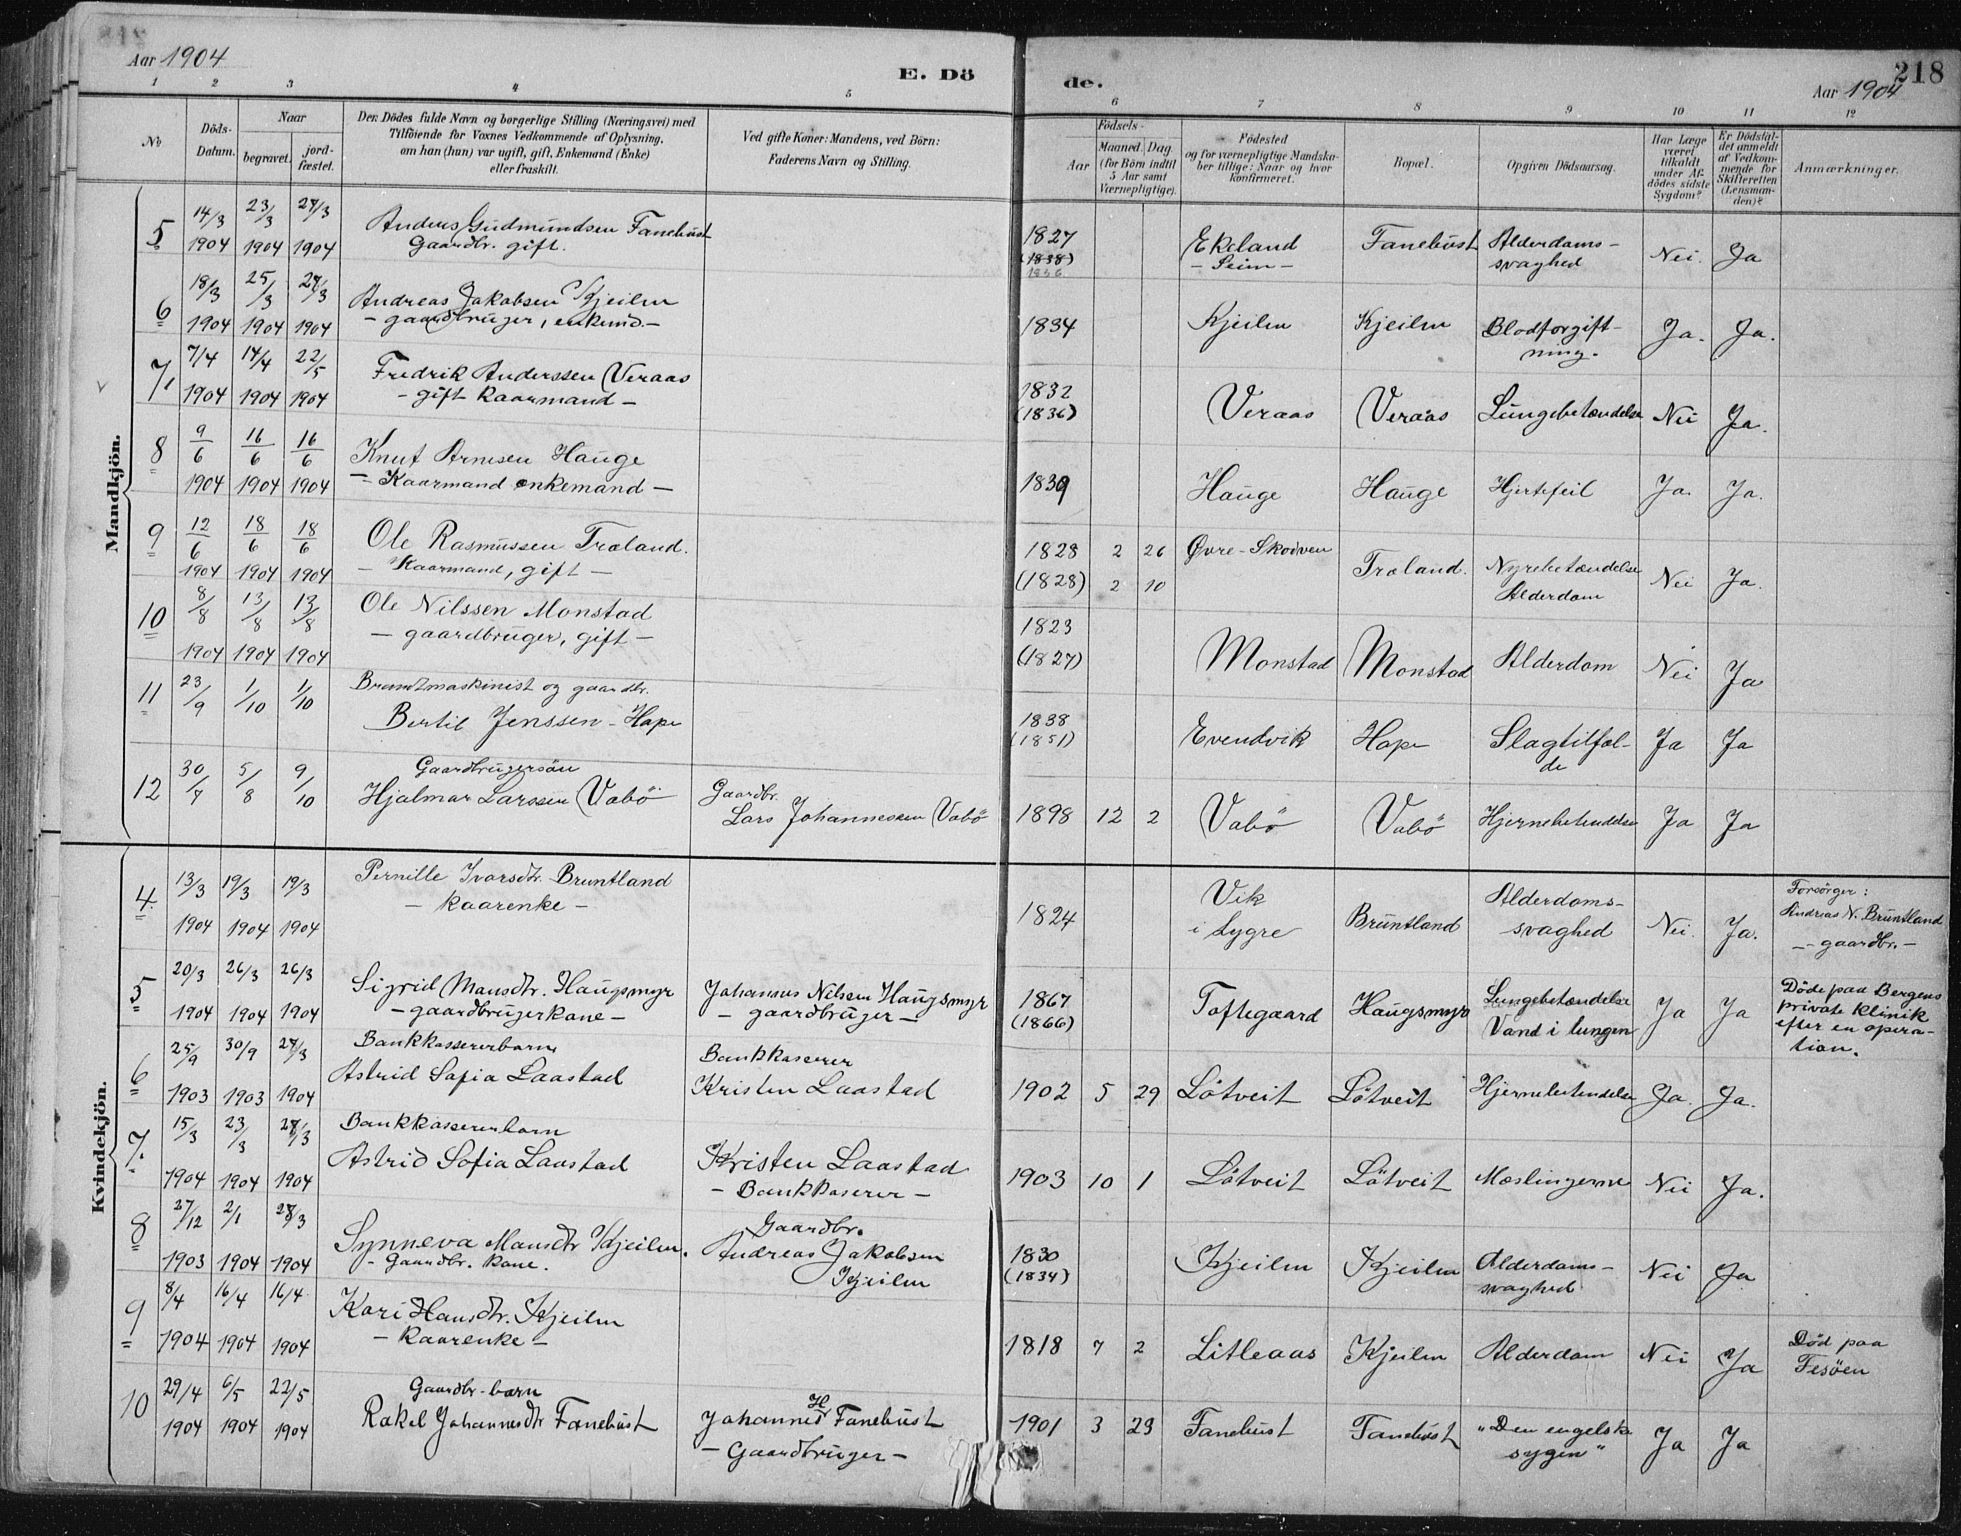 Aar 1904
E. Dö
de.
218
Aar 1904
1 2 3 4 5 6 7 8 9 10 11 12
No.
Döds-Datum.
Naar
begravet.
jord-fæstet.
Den Dödes fulde Navn og borgerlige Stilling (Næringsvei) med
Tilföiende for Voxnes Vedkommende af Oplysning,
om han (hun) var ugift, gift, Enkemand (Enke)
eller fraskilt.
Ved gifte Koner: Mandens, ved Börn:
Faderens Navn og Stilling.
Födsels-
Aar
Maaned. Dag.
(for Börn indtil
5 Aar samt
Værnepligtige).
Födested
og for værnepligtige Mandska-
ber tillige: Naar og hvor
konfirmeret.
Bopæl.
Opgiven Dödsaarsag.
Har Læge
været
tilkaldt
under Af-
dödes sidste
Sygdom?
Er Dödsfal-
det anmeldt
af Vedkom-
mende for
Skifteretten
(Lensman-
den)?
Anmærkninger.
Mandkjön.
5 14/3 1904 23/3 1904 27/3 1904
Anders Gudmundsen Fanebust
Gaardbr. gift.
1827 (1838) 1836
Ekeland
- Seim -
Fanebust
Alderdoms-
svaghed
Nei. Ja
6 18/3 1904 25/3 1904 27/3 1904
Andreas Jakobsen Kjeilen
- gaardbruger, enkemd. -
1834
Kjeilen Kjeilen
Blodforgift-
ning.
Ja. Ja.
7 7/4 1904 14/4 1904 22/5 1904
Fredrik Anderssen Veraas
- gift kaarmand -
1832 (1836)
Veraas Veraas Lungebetændelse Nei Ja.
8 9/6 1904 16/6 1904 16/6 1904
Knut Arnesen Hauge
- Kaarmand enkemand -
1839
Hauge Hauge Hjertefeil Ja. Ja.
9 12/6 1904 18/6 1904 18/6 1904
Ole Rasmussen Træland.
- Kaarmand, gift -
1828 2 26
(1828) 2 10
Øvre-Skodven
Træland.
Nyrebetændelse
Alderdom
Nei Ja.
10 8/8 1904 13/8 1904 13/8 1904
Ole Nilssen Monstad
- gaardbruger, gift -
1823
(1827)
Monstad Monstad Alderdom Nei Ja
11 23/9 1/10 1/10
Brandtmaskinist og gaardbr.
Bertil Jenssen - Hope
1838
(1851)
Evendvik Hope
Slagtilfæl-
de
Ja Ja
12 30/7 5/8 9/10
Gaardbrugersön
Hjalmar Larssen Vabö
Gaardbr.
Lars Johannessen Vabö
1898 12 2
Vabö Vabö Hjernebetændelse Ja Ja
Kvindekjön.
4. 13/3 1904 19/3 1904 19/3 1904
Pernille Ivarsdtr. Bruntland
- kaarenke -
1824
Vik
i Lygre
Bruntland
Alderdoms-
svaghed
Nei. Ja.
Forsörger:
Andreas N. Bruntland
- gaardbr. -
5 20/3 1904 26/3 1904 26/3 1904
Sigrid Monsdtr. Haugsmyr
- gaardbrugerkone -
Johannes Nilsen Haugsmyr
- gaardbruger -
1867
(1866)
Toftegaard Haugsmyr
Lungebetændelse
Vand i lungen
Ja Ja
Döde paa Bergens
private klinik
efter en opera-
tion.
6 25/9 1903 30/9 1903 27/3 1904
Bankkassererbarn
Astrid Sofia Laastad
Bankkaserer
Kristen Laastad
1902 5 29
Lötveit Lötveit Hjernebetændelse Ja. Ja.
7. 15/3 1904 23/3 1904 27/3 1904
Bankkassererbarn
Astrid Sofia Laastad
Kristen Laastad
- Bankkaserer -
1903 10 1
Lötveit Lötveit Mæslingerne Nei Ja.
8 27/12 1903 2/1 1904 28/3 1904
Synneva Monsdtr Kjeilen.
- Gaardbr. kone.
Gaardbr.
Andreas Jakobsen
Kjeilen
1830
(1834)
Kjeilen Kjeilen
Alderdoms-
svaghed
Nei Ja
9 8/4 1904 16/4 1904 16/4 1904
Kari Hansdtr. Kjeilen
- kaarenke -
1818 7 2
Litleaas Kjeilen Alderdom Nei Ja
Död paa
Fesöen
10 29/4 1904 6/5 1904 22/5 1904
Gaardbr-barn
Rakel Johannesdtr Fanebust
Johannes H Fanebust
- Gaardbruger -
1901 3 23
Fanebust Fanebust
"Den engelske
sygen"
Ja Ja